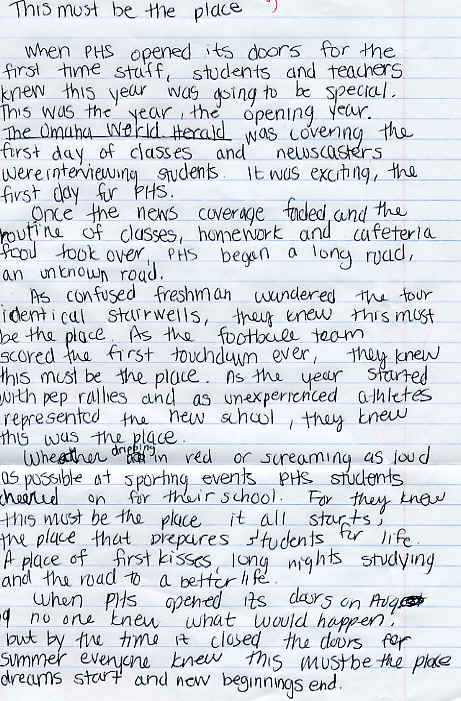 This must be the place
When PHS opened its doors for the
first time staff, students and teachers
knew this year was going to be special.
This was the year, the opening year.
The Omaha World Herald was covering the
first day of classes and newscasters
were interviewing students. It was exciting, the
first day for PHS.
Once the news coverage faded and the
routine of classes, homework and cafeteria
food took over, PHS began a long road,
an unknown road.
As confused freshman wandered the four
identical stairwells, they knew this must
be the place. As the football team
scored the first touchdown ever, they knew
this must be the place. As the year started
with pep rallies and as unexperienced athletes
represented the new school, they knew
this was the place.
Wheather dripping in red or screaming as loud
as possible at sporting events PHS students
cheered on for their school. For they knew
this must be the place it all starts,
the place that prepares students for life.
A place of first kisses, long nights studying
and the road to a better life.
When PHS opened its doors on Aug
9 no one knew what would happen,
but by the time it closed the doors for
summer everyone knew this must be the place
dreams start and new beginnings end.